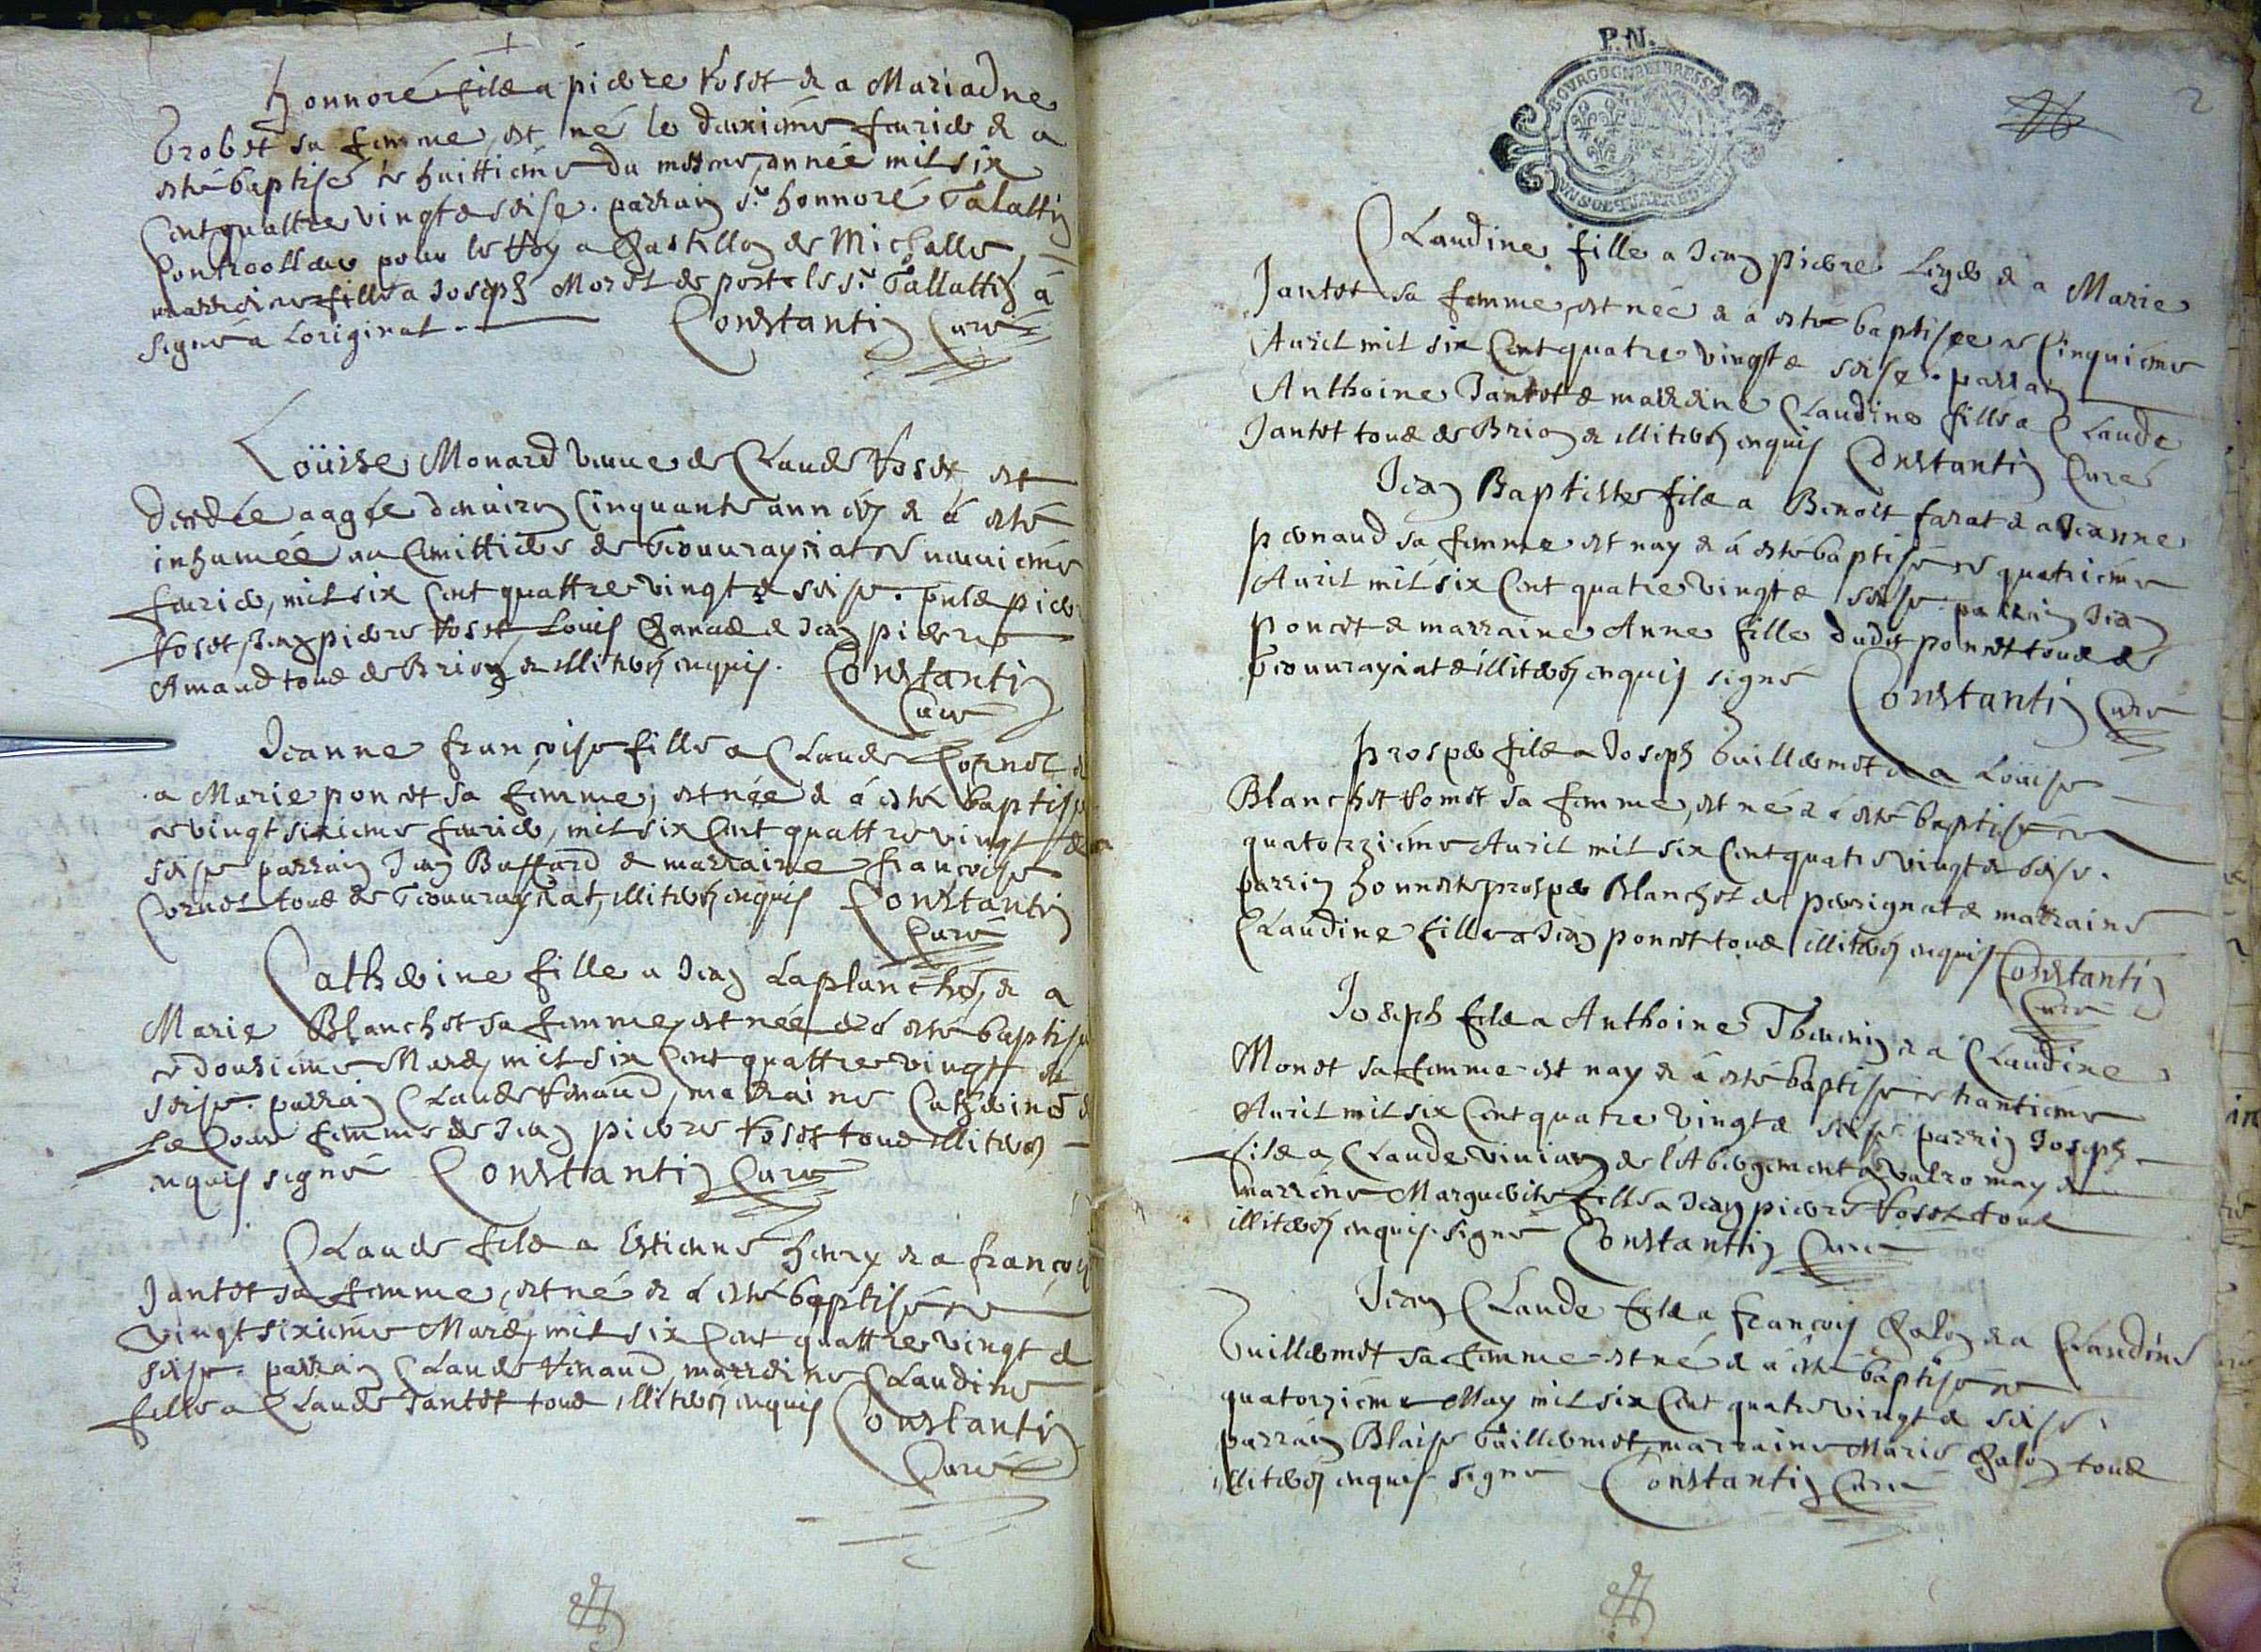 Honnoré filz a pierre Roset & a Mariadne
Brobet sa femme, est né le deuxiéme feurier & a
esté baptisé le huittiéme du mesme, année mil six
Cent quattre vingt & seise. parrain sr. honnoré Tallattin
Controolleur pour le Roy a Chastillon de Michalle,
marreine fille a Joseph Morel de port le sr. Tallattin à
signé a Loriginal. Constantin Curé
Loüise Monard veuue de Claude Roset est
decedée aagée denuiron Cinquante années & á esté
inhumée au Cimittiere de Geouurayssiat le neuuiéme
feurier, mil six Cent quattre vingt & seise. pntz pierre
Roset, Jean pierre Roset, Louis & Jean pierre
Amaud touz de Brion & illiterés enquis. Constantin
Curé
Jeanne françoise fille a Claude Cornet &
a Marie poncet sa femme, est née & á esté baptisée
le vingt sixiéme feurier, mil six Cent quattre vingt &
seise parrain Jean Buffard & marraine françoise
Cornet touz de Geouurayssiat, illiterés enquis Constantin
Curé
Catherine fille a Jean Laplanche, & a
Marie Blanchet sa femme, est née & á esté baptisée
le dousiéme Mars, mil six Cent quattre vingt &
seise. parrain Claude Renaud, marraine Catherine
femme de Jean pierre Roset touz illiterés
enquis signé Constantin Curé
Claude filz a Estienne henry & a françoise
Jantet sa femme, est né & á esté baptisé le
vingt sixiéme Mars, mil six Cent quattre vingt &
seise. parrain Claude Renaud, marreine Claudine
fille a Claude Jantet touz illiterés enquis Constantin
Curé
P.N.
BOURGOGNE ET BRESSE
UN SOL QUATRE DEN
2
Claudine fille a Jean pierre & a Marie
Jantet sa femme, est née & á esté baptisée le Cinquiéme
Auril mil six Cent quatre vingt & seise. parrain
Anthoine Jantet & marreine Claudine fille a Claude
Jantet touz de Brion & illiterés enquis Constantin Curé
Jean Baptiste filz a Benoit farat & a Jeanne
pernaud sa femme est nay & á esté baptisé le quatriéme
Auril mil six Cent quatre vingt & seise. parrain Jean
poncet & marraine Anne fille dudit poncet touz de
Geouurayssiat & illiterés enquis signé Constantin Curé
Prosper filz a Joseph Guillermet & a Loüise
Blanchet Romet sa femme, est né & á esté baptisé le
quatorziéme Auril mil six Cent quatre vingt & seise.
parrin honneste prosper Blanchet de perignat & marraine
Claudine fille a Jean poncet touz illiterés enquis Constantin
Curé
Joseph filz a Anthoine Theuenin & á Claudine
Monet sa femme est nay & á esté baptisé le trantiéme
Auril mil six Cent quatre vingt & seise. parrin Joseph
filz a Claude de l'Abergement a Valromay &
marreine Marguerite fille a Jean pierre Roset touz
illiterés enquis. signé Constantin Curé
Jean Claude filz a françois Chalon & a Claudine
Guillermet sa femme est né & á esté baptisé le
quatorziéme May mil six Cent quatre vingt & seise.
parrain Blaise Guillermet, marraine Marie Chalon touz
illiterés enquis signé Constantin Curé